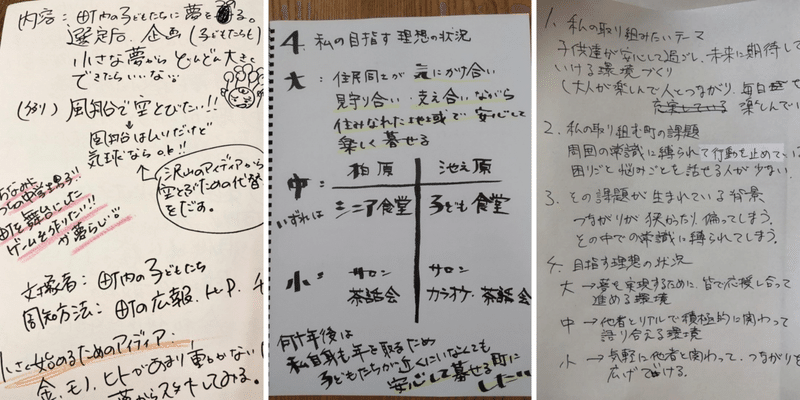 内容：町内の子どもたちに夢を
選定后、企画（子どもたちも）
小さな夢から どんどん大きく
できたらいいな。
(例) 風船で空とびたい!!
風船はムリだけど
気球ならOK!!
沢山のアイディアから
空とぶための代替
をだす。
町を舞台にした
ゲームを作りたい!!
対象者：町内の子どもたち
周知方法：町の広報、H.P.
小さく始めるためのアイディア
金、モノ、ヒトがあまり動かない
夢からスタートしてみる。
4. 私の目指す理想の状況
大：住民同士が気にかけ合い
見守り合い 支え合いながら
住みなれた地域で安心して
楽しく暮せる
中：柏原 池え原
いずれは シニア食堂 子ども食堂
小：サロン サロン
茶話会 カラオケ・茶話会
何十年後は
私自身も年を取るため
子どもたちが近くにいなくても
安心して暮せる町に
したい
1. 私の取り組みたいテーマ
子供達が安心して過ごし、未来に期待して
いける環境づくり
(大人が楽しんで人とつながり、毎日
楽しんでい
2. 私の取り組む町の課題
周囲の常識に縛られて行動を止めて、
困りごと悩みごとを話せる人が少ない
3. その課題が生まれている背景
つながりが狭かったり、偏ってしまう。
その中での常識に縛られてしまう。
4. 目指す理想の状況
大→夢を実現するために、皆で応援し合って
進める環境
中→他者とリアルで積極的に関わって
語り合える環境
小→気軽に他者と関わって、つながりを
広げていける。